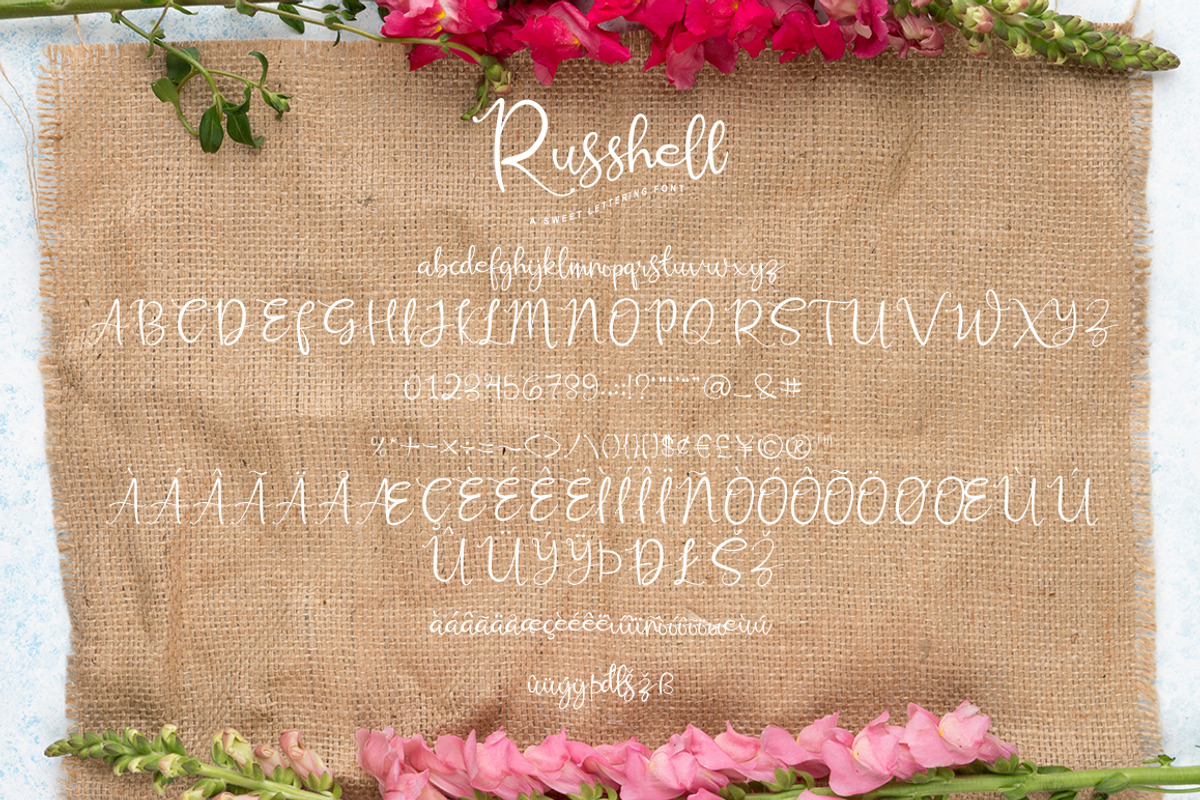 Russhell
A SWEET LETTERING FONT
abcdefghijklmnopqrstuvwxyz
ABCDEFGHIJKLMNOPQRSTUVWXYZ
0123456789.,:;!?'"‘’“”@_&#
%*+-×÷=~<>,/\(){}[]$¢€£¥©®™
ÀÁÂÃÄÅÆÇÈÉÊËÌÍÎÏÑÒÓÔÕÖØŒÙÚ
ÛÜÝŸÞÐŁŠŽ
àáâãäåæçèéêëìíîïñòóôõöøœùú
ûüýÿþđłšžß